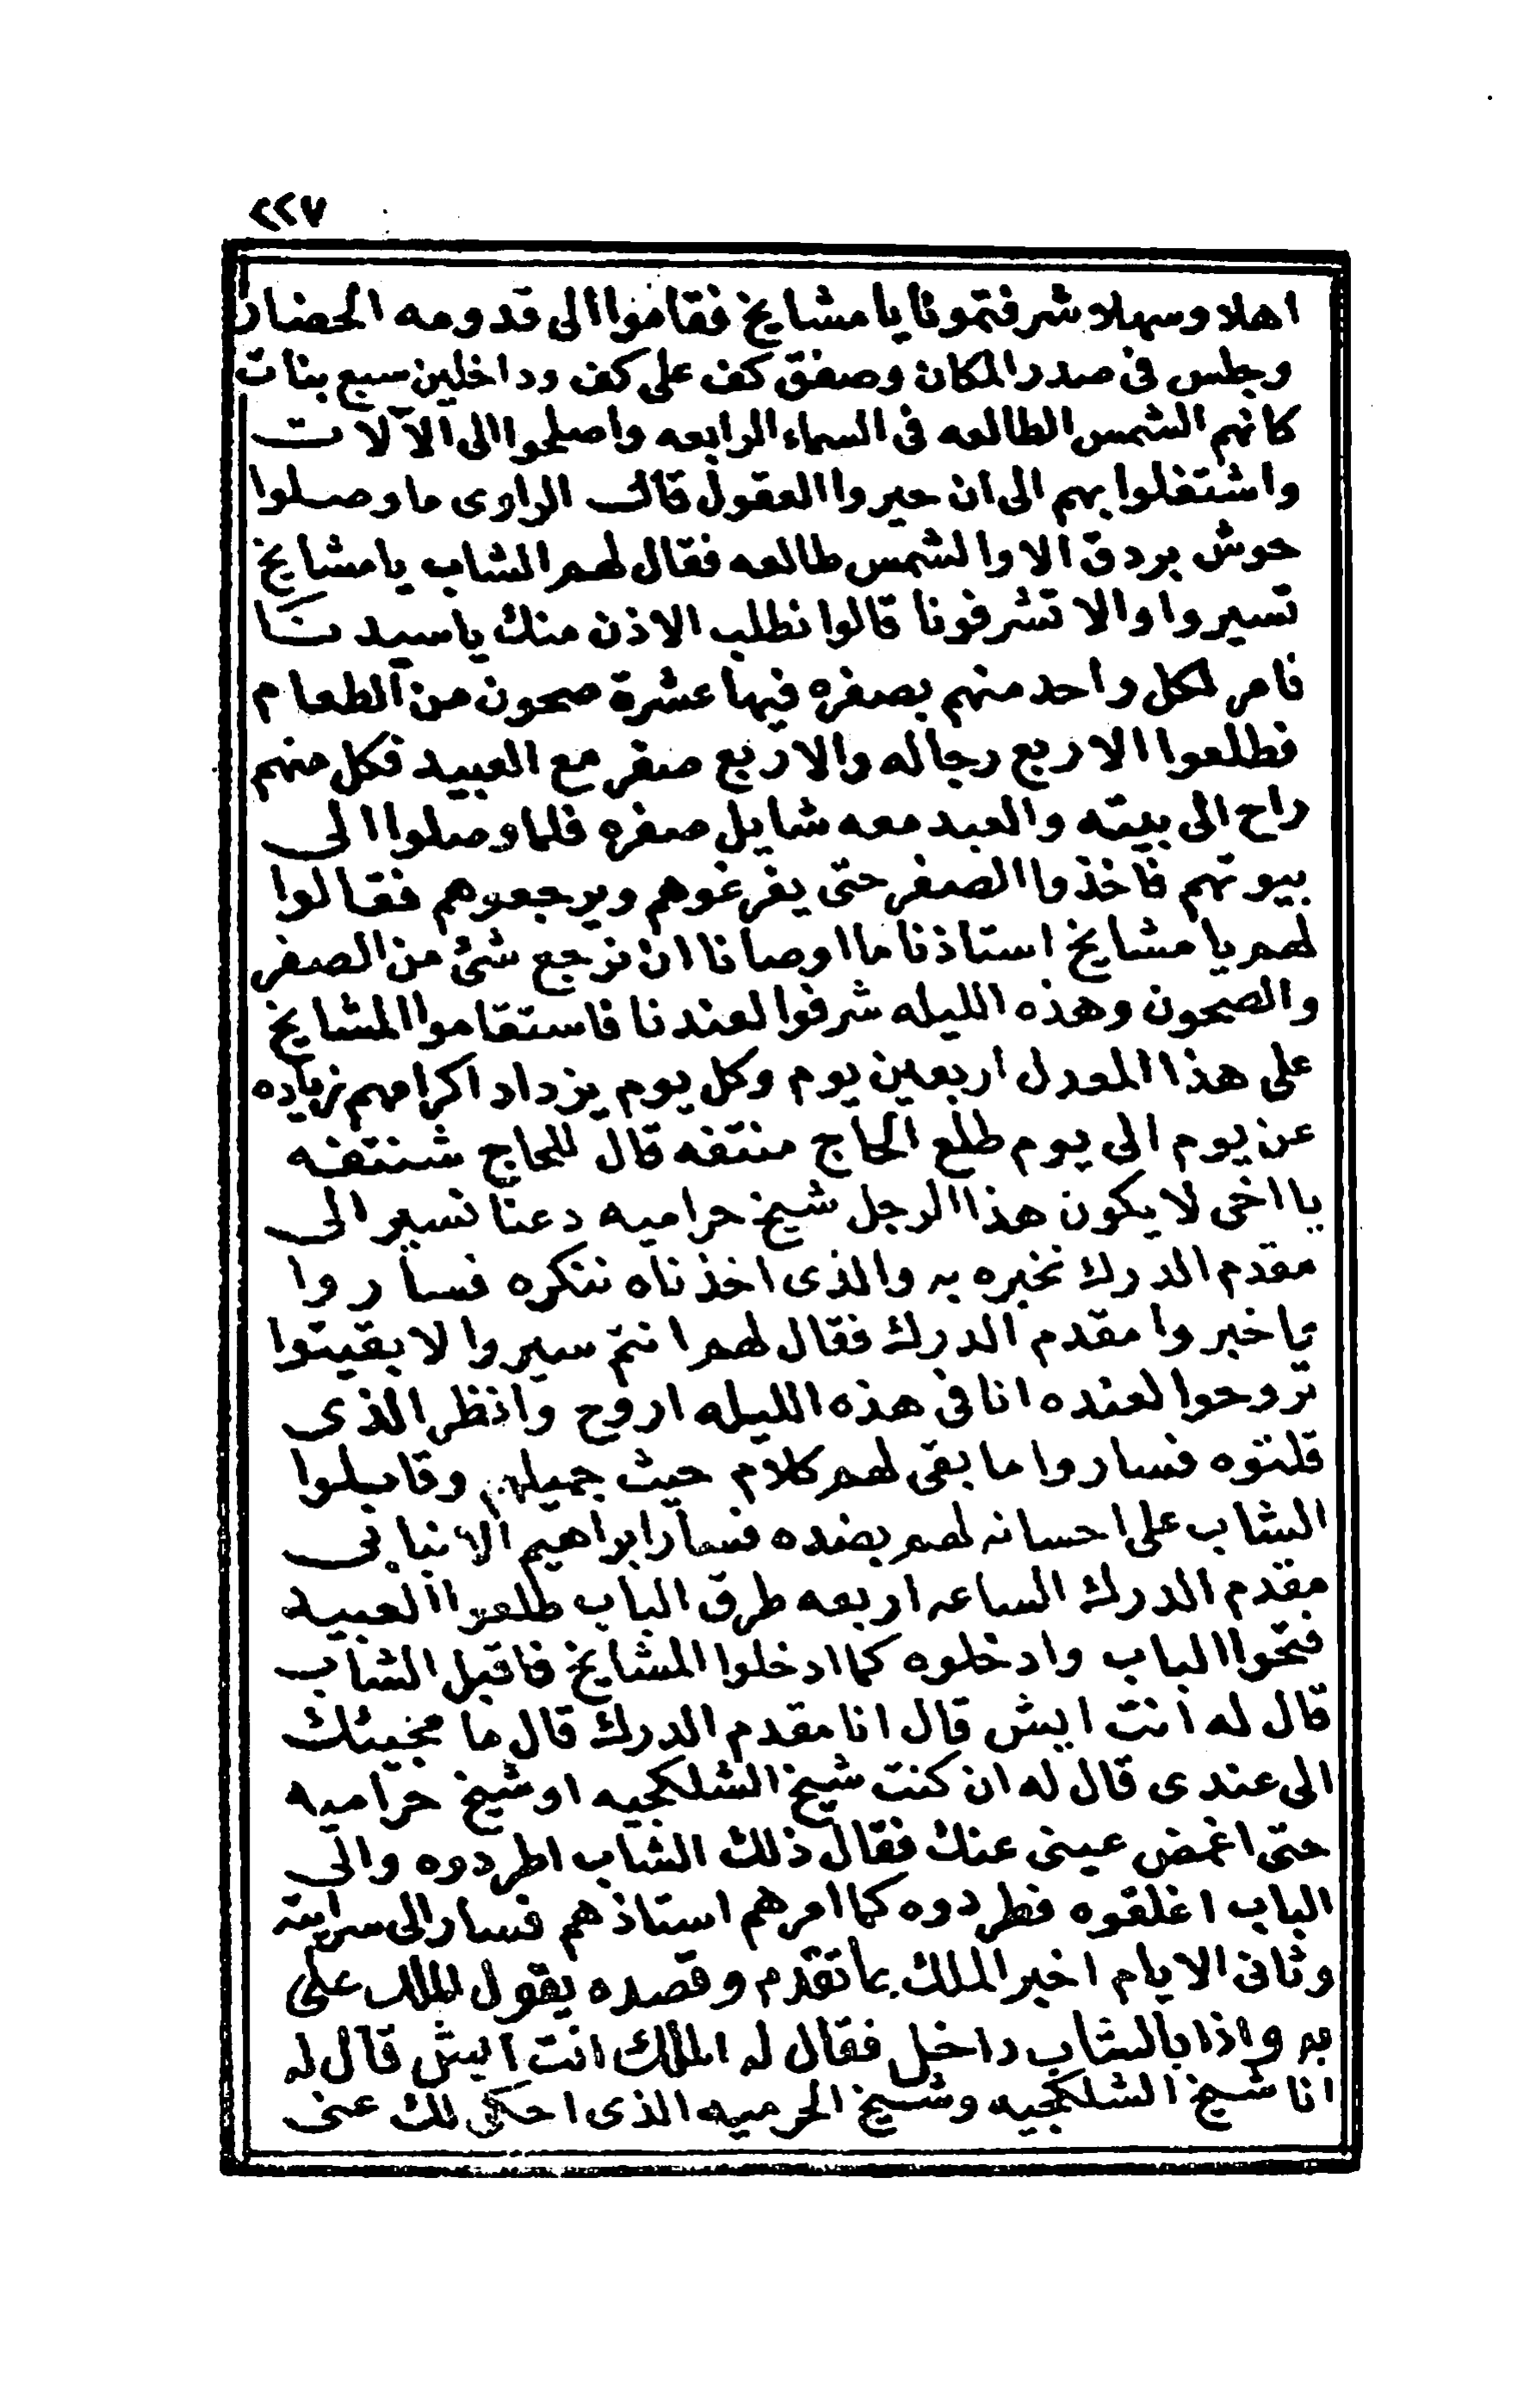 ٢٢٧
اهلا وسهلا شرفتمونا يا مشايخ فقاموا الى قدومه الحضار
وجلس فى صدر المكان وصفق كف على كف وداخلين سبع بنات
كانهم الشمس الطالعه فى السماء الرابعه واصلحوا الى الآلات
واشتغلوا بهم الى ان حيروا العقول قال الراوى ما وصلوا
حوش بردق الا والشمس طالعه فقال لهم الشاب يا مشايخ
تسيروا والا تشرفونا قالوا نطلب الاذن منك يا سيدنا
فامر لكل واحد منهم بصفره فيها عشرة صحون من الطعام
فطلعوا الاربع رجاله والاربع صفر مع العبيد فكل منهم
راح الى بيته والعبد معه شايل صفره فلما وصلوا الى
بيوتهم فاخذوا الصفر حتى يفرغوهم ويرجعوهم فقالوا
لهم يا مشايخ استاذنا ما اوصانا ان نرجع شئ من الصفر
والصحون وهذه الليله شرفوا لعندنا فاستقاموا المشايخ
على هذا المعدل اربعين يوم وكل يوم يزداد اكرامهم زياده
عن يوم الى يوم طلع الحاج منتفه قال للحاج شنتفه
يا اخى لا يكون هذا الرجل شيخ حراميه دعنا نسير الى
مقدم الدرك نخبره به والذى اخذناه ننكره فساروا
تا خبروا مقدم الدرك فقال لهم انتم سيروا لا بقيتوا
تروحوا لعنده انا فى هذه الليله اروح وانظر الذى
قلتوه فساروا ما بقى لهم كلام حيث جميلهم وقابلوا
الشاب على احسانه لهم بضده فسار ابراهيم الانبابى
مقدم الدرك الساعه اربعه طرق الباب طلعوا العبيد
فتحوا الباب وادخلوه كما ادخلوا المشايخ فاقبل الشاب
قال له انت ايش قال انا مقدم الدرك قال ما مجيئك
الى عندى قال له ان كنت شيخ الشلكجيه او شيخ حراميه
حتى اغمض عينى عنك فقال ذلك الشاب اطردوه والى
الباب اغلقوه فطردوه كما امرهم استاذهم فسار الى سرايته
وثانى الايام اخبر الملك بما تقدم وقصده يقول للملك على
به واذا بالشاب داخل فقال له الملك انت ايش قال له
انا شيخ الشلكجيه وشيخ الحرميه الذى احكى لك عنى